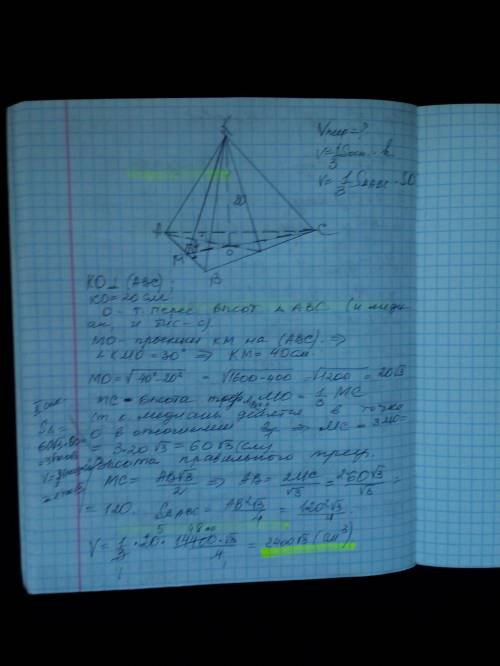 K
Vпир = ?
V = 1/3 Sосн · h
V = 1/3 S_ABC · SO
20
A
C
M
O
B
KO ⊥ (ABC)
KO = 20 см
O - т. перес высот △ ABC (и меди-
ан, и бис-с).
MO - проекция KM на (ABC). ⇒
∠ KMO = 30° ⇒ KM = 40 см
MO = √40² - 20² = √1600 - 400 = √1200 = 20√3
MC - высота треуг. MO = 1/3 MC
(т. к. медианы делятся в точке
O в отношении 2/1 ⇒ MC = 3MO =
= 3 · 20√3 = 60√3 (см)
Высота правильного треуг.
MC = AB√3/2 ⇒ AB = 2MC/√3 = 2·60√3/√3 =
= 120. S_ABC = AB²√3/4 = 120²√3/4
V = 1/3 · 20 · 14400·√3/4 = 2400√3 (см³)